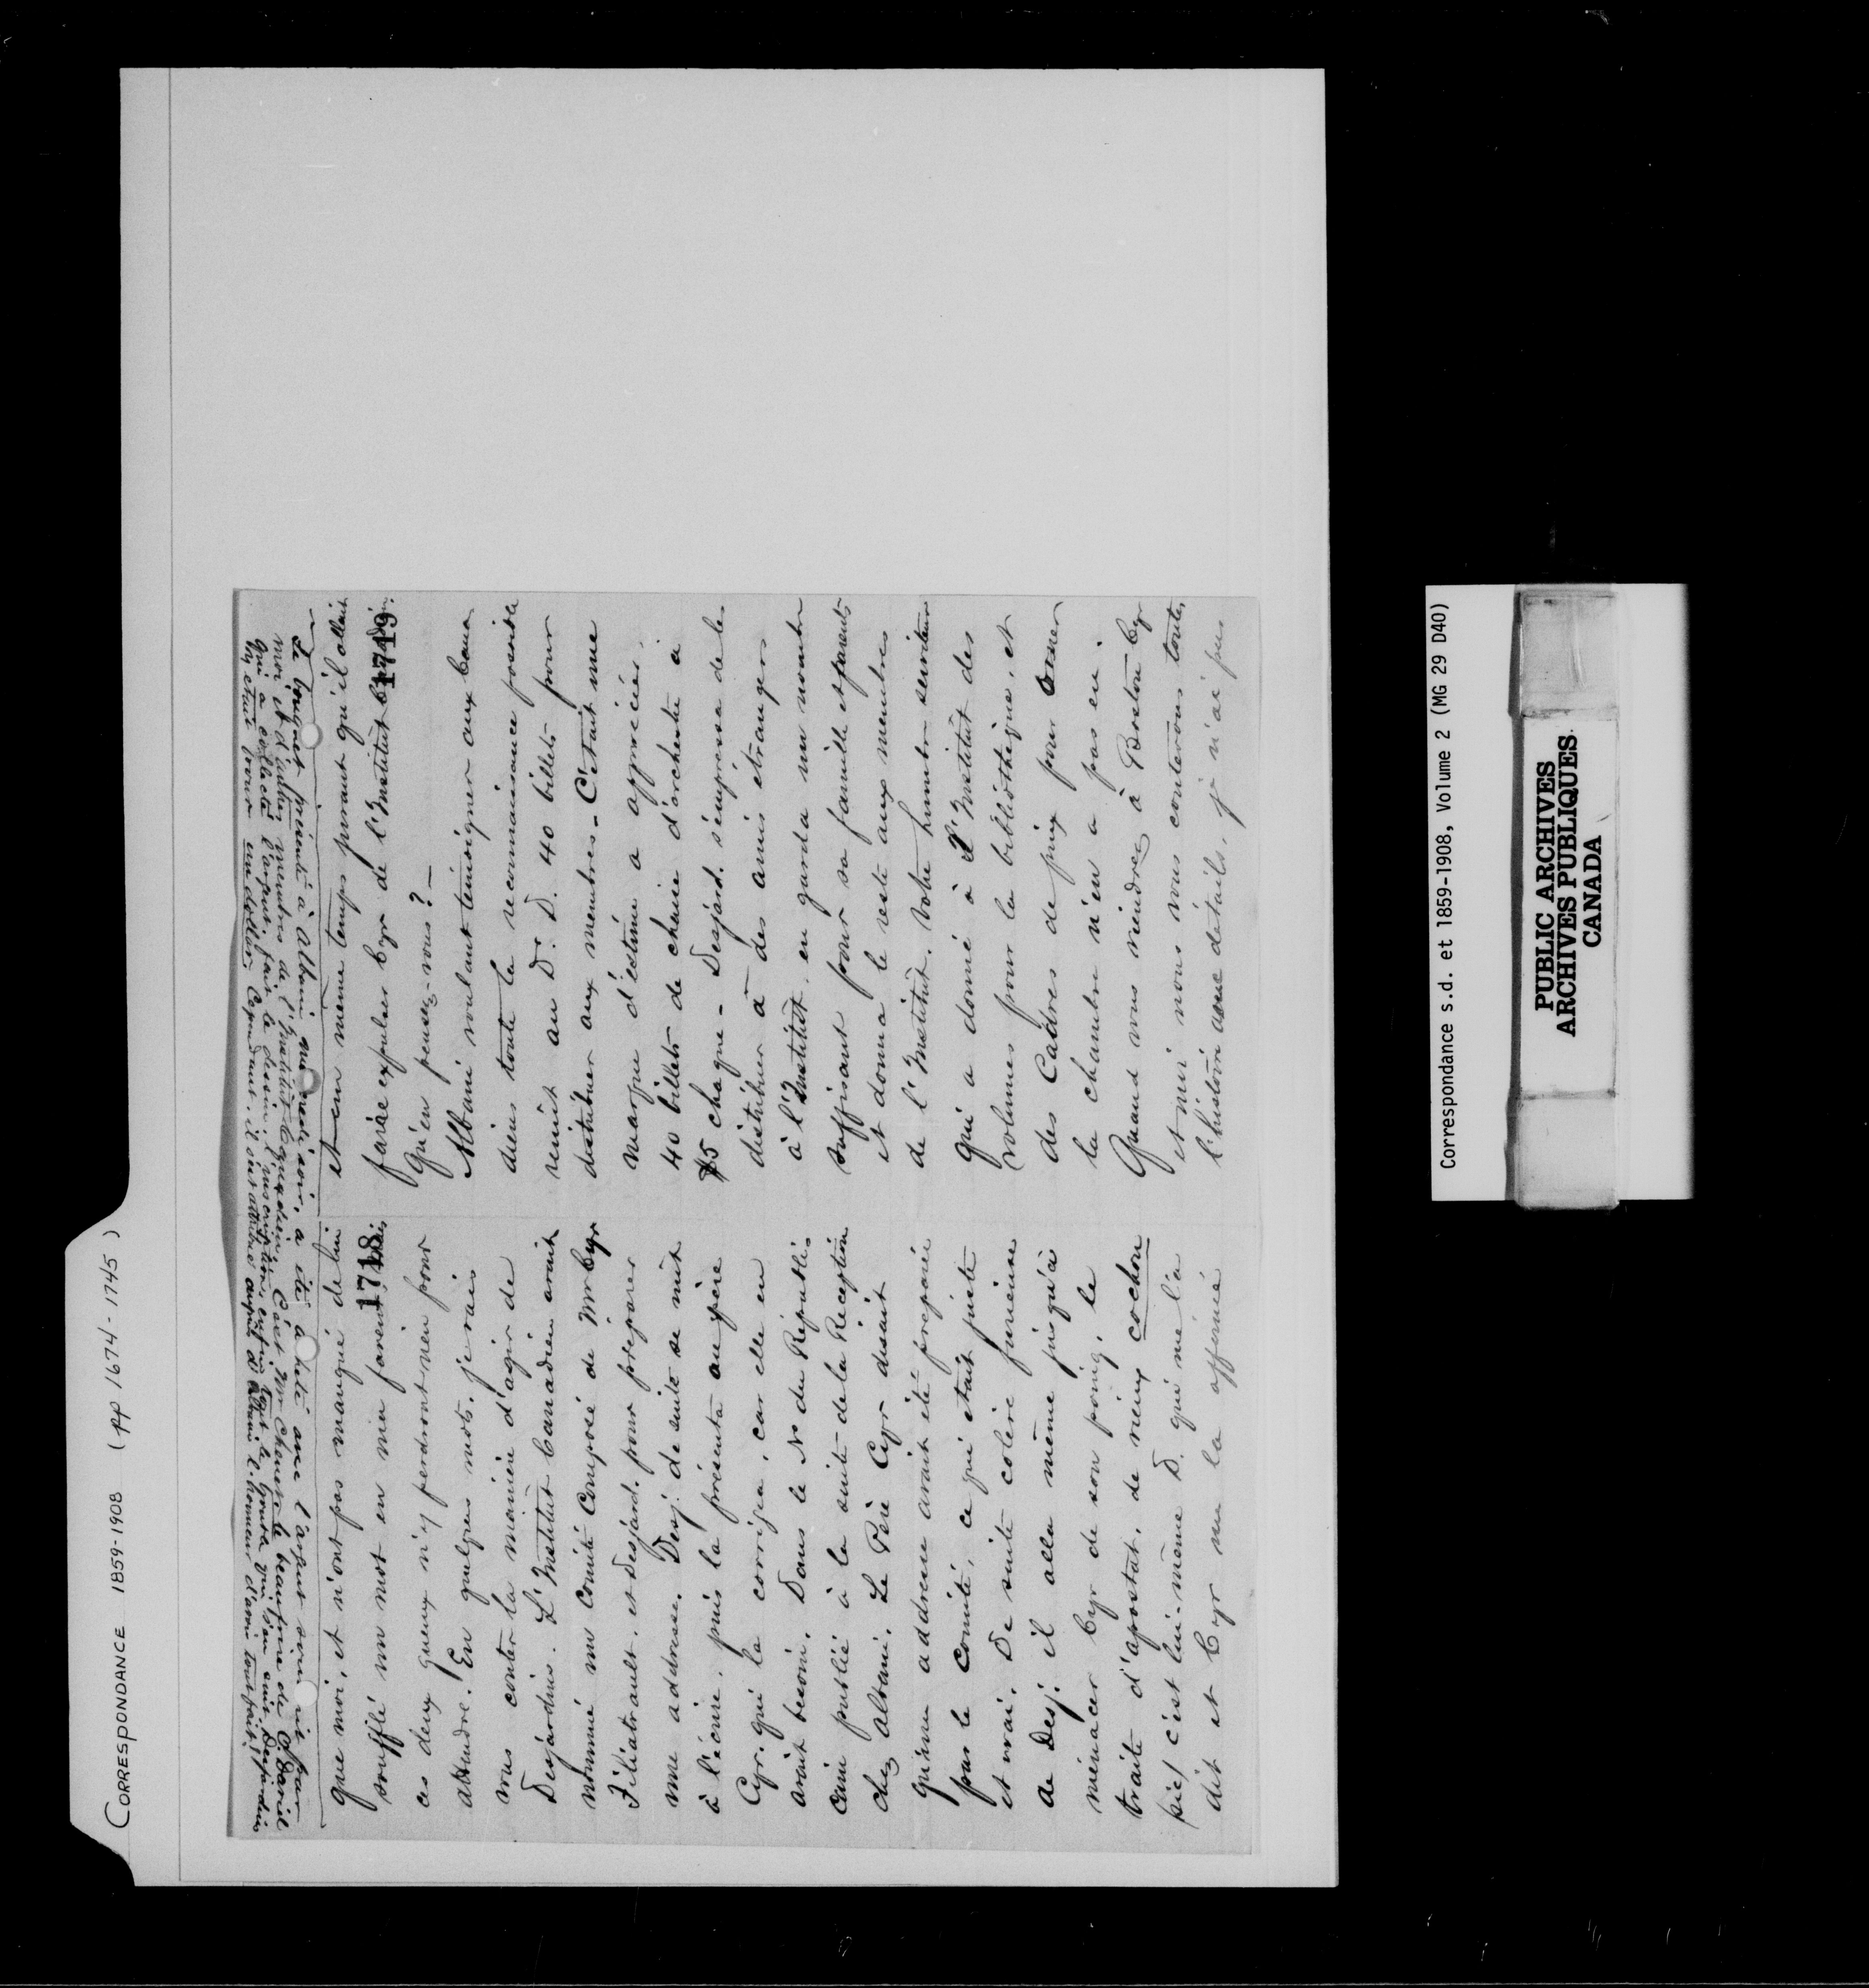 CORRESPONDANCE 1859-1908 (pp 1674-1745)
Le bouquet présenté à Albani, mercredi soir, a été acheté avec l'argent
moi et d'autres membres de l'Institut Canadien. C'est Mr
qui a collecté l'argent, fait le dessin, l'inscription, enfin tout le
n'y était pour un dollar. Cependant, il s'est attribué auprès d'Albani l'honneur d'avoir tout fait!!
1718
que moi, et n'ont pas manqué de lui
soufflé un mot en ma faveur, mais
ces deux gueux n'y perdront rien pour
attendre. En quelques mots, je vais
vous conter la manière d'agir de
Desjardins. L'Institut Canadien avait
nommé un comité composé de Mr Cyr
Filiatrault, et Desjard. pour préparer
une addresse. Desj. de suite se mit
à l'écrire, puis la présenta au père
Cyr. qui la corrigea, car elle en
avait besoin. Dans le No du Républi-
cain publié à la suite de la Réception
chez Albani, Le Père Cyr disait
qu'une addresse avait été préparée
par le comité, ce qui était juste
et vrai. De suite colère furieuse
de Desj. il alla même jusqu'à
ménacer Cyr de son poing, le
traita d'apostat, de vieux cochon
pis/ c'est lui-même D. qui me l'a
dit et Cyr me la affirmé
1719
et en même temps jurant qu'il allait
faire expulser Cyr de l'Institut
Qu'en pensez-vous? —
Albani voulant témoigner aux Cana
diens toute la reconnaissance possible
remit au Dr. D. 40 billets pour
distribuer aux membres — C'était une
marque d'estime à apprécier.
40 billets de chaise d'orchestre à
$5 chaque — Desjard. s'empressa de les
distribuer à des amis étrangers
à l'Institut, en garda un nombre
suffisant pour sa famille et parents
et donna le reste aux membres
de l'Institut. Votre humble serviteur
qui a donné à l'Institut des
volumes pour la bibliothèque, et
des Cadres de prix pour orner
la chambre n'en a pas eu.
Quand vous viendrez à Boston Cyr
et moi nous vous conterons toute
l'histoire avec détails, je n'ai pas
Correspondance s.d. et 1859-1908, Volume 2 (MG 29 D40)
PUBLIC ARCHIVES
ARCHIVES PUBLIQUES
CANADA